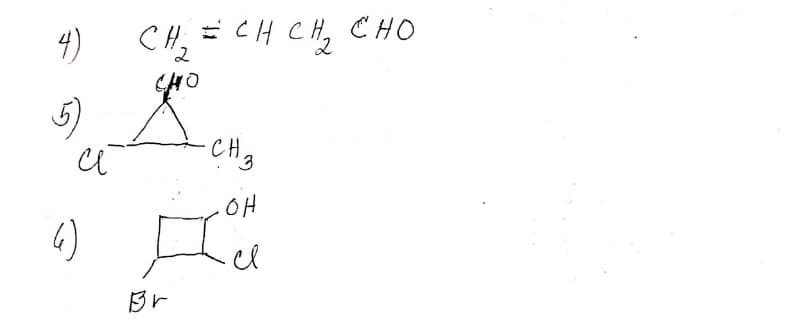 4) CH₂ = CH CH₂ CHO
CHO
5)
Cl
CH₃
OH
6)
Cl
Br